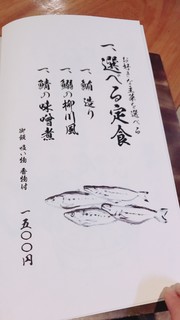 お好きな主菜を選べる
一、選べる定食
一、鮪 造り
一、鰯の柳川風
一、鯖の味噌煮
御飯 吸い物 香物付
一五〇〇円